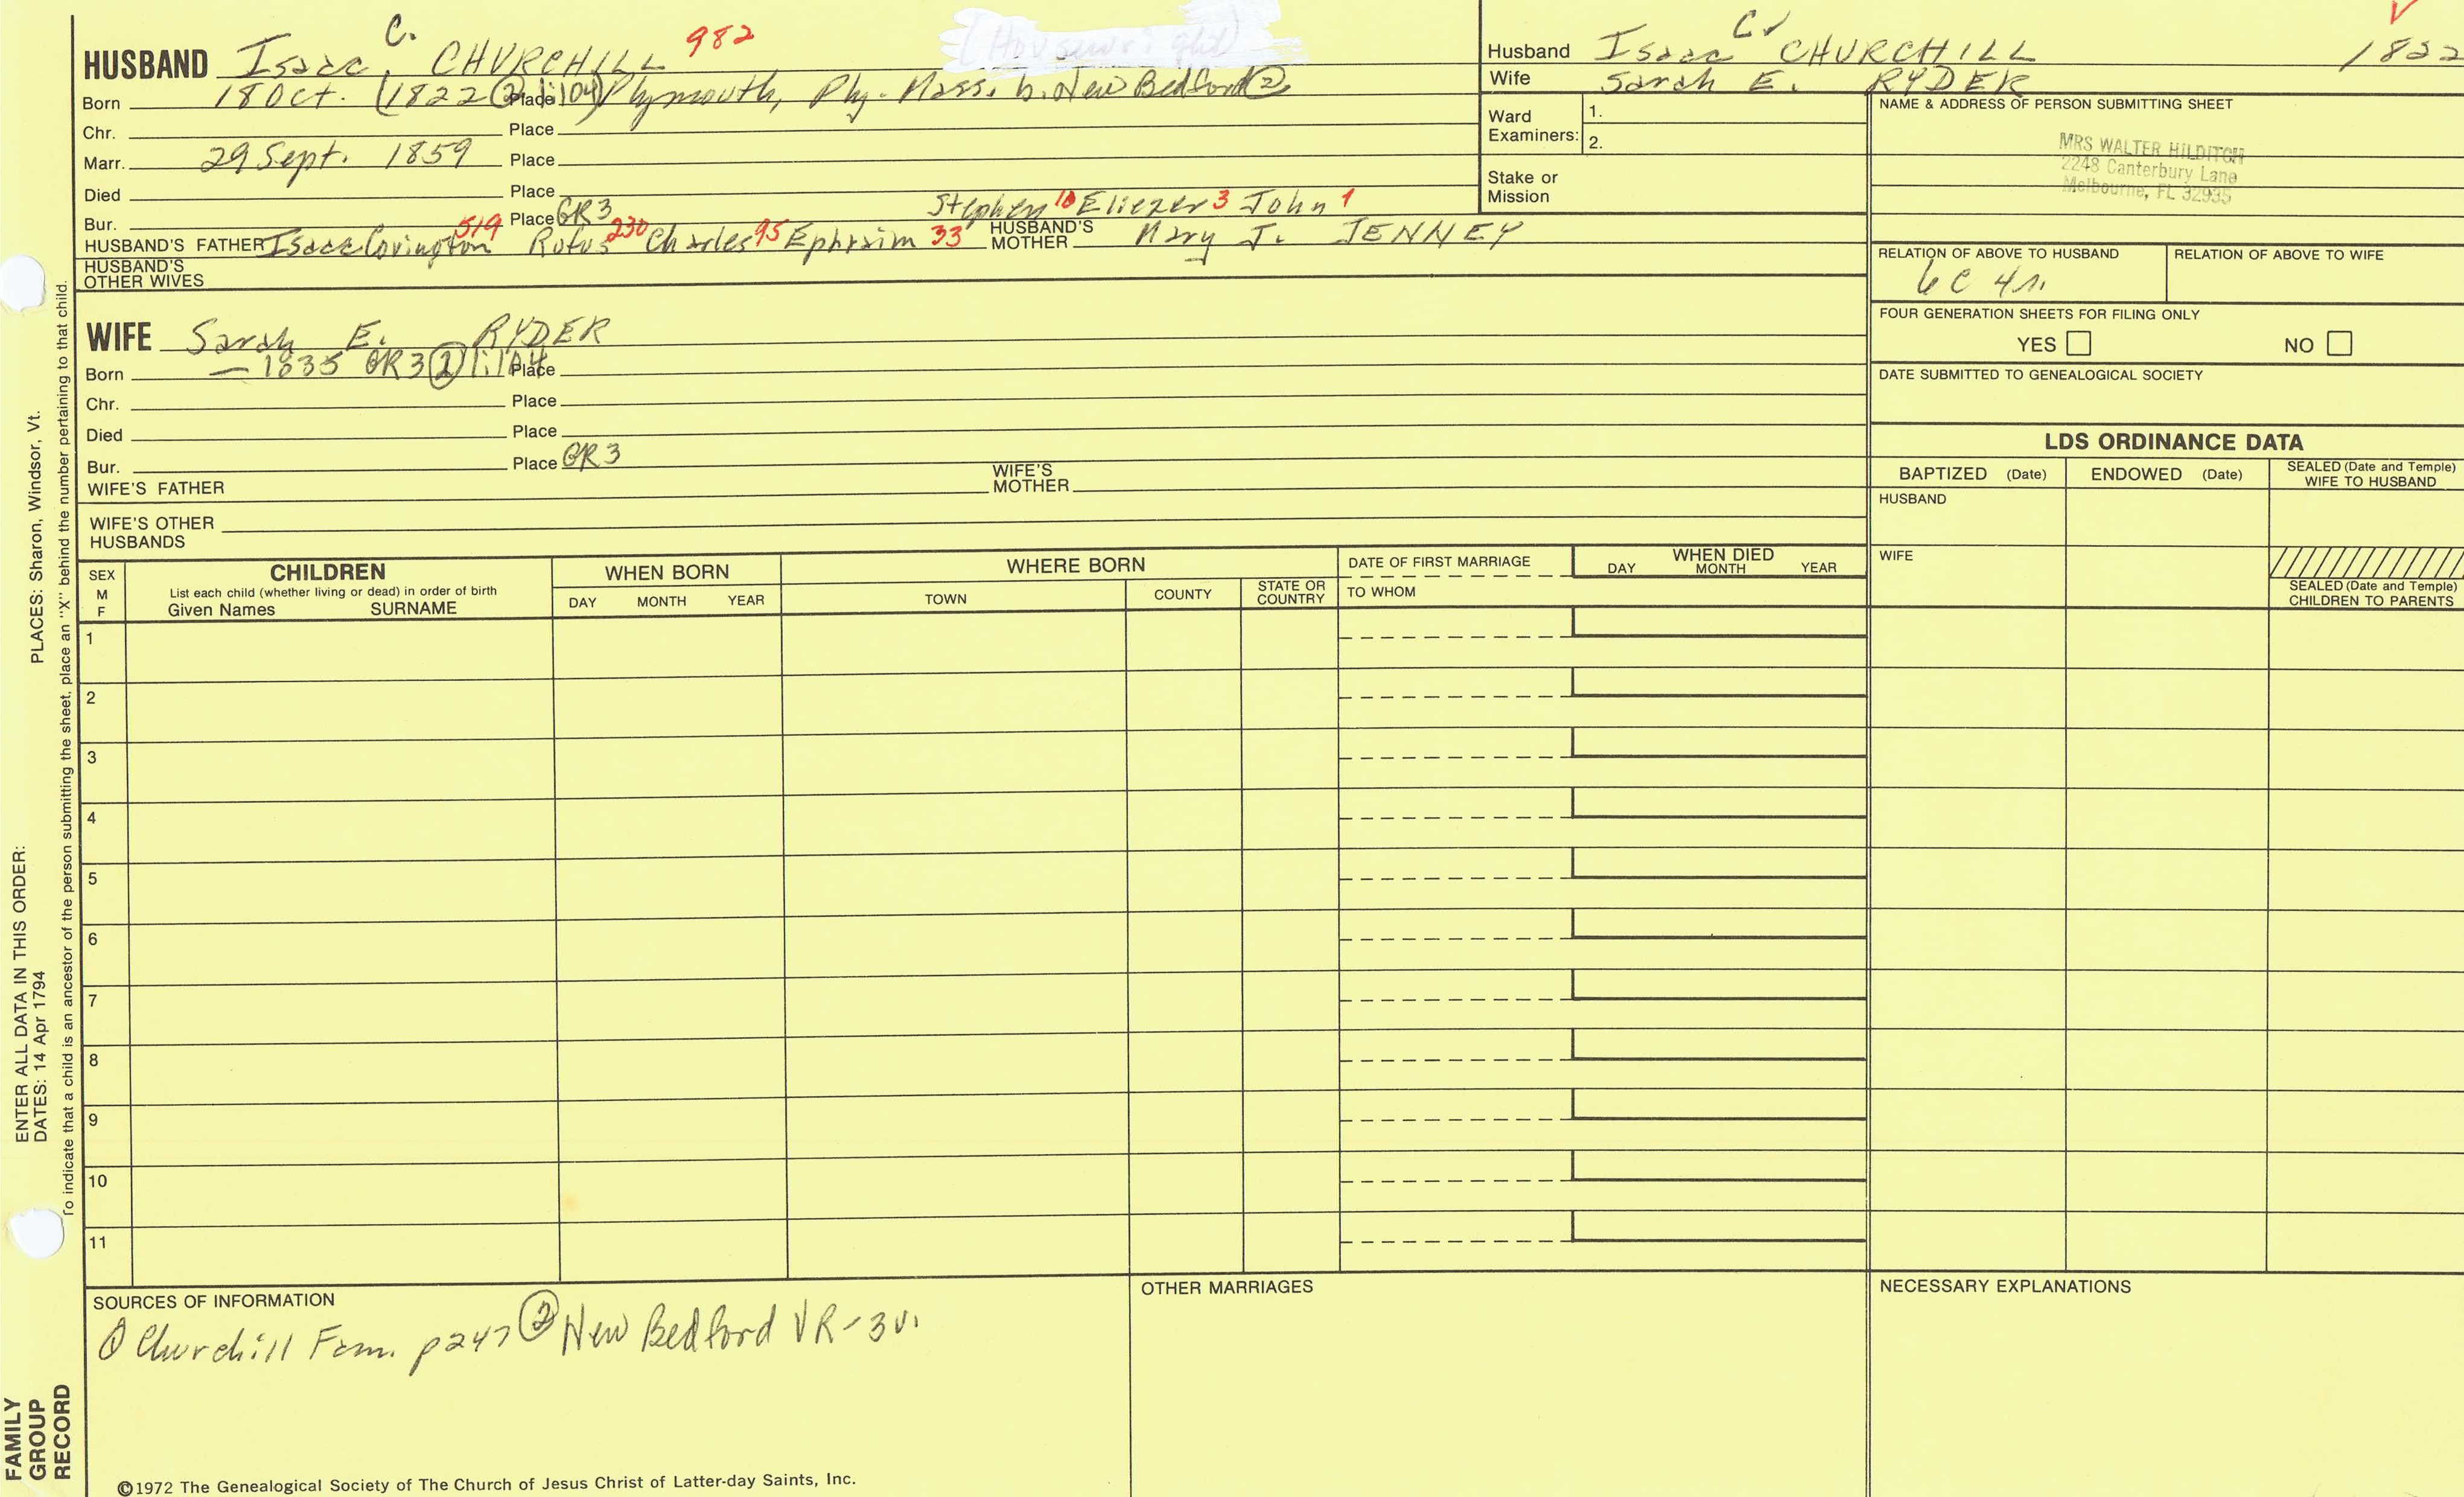 HUSBAND Isaac C. CHURCHILL 982
Born 18 Oct. (1822 ② Place Plymouth, Ply. Mass. b. New Bedford ②
Chr. Place
Marr. 29 Sept. 1859 Place
Died Place
Bur. Place GR3 Stephen 10 Eliezer 3 John 1
HUSBAND'S FATHER Isaac Covington 519 Rufus 230 Charles 95 Ephraim 33 HUSBAND'S MOTHER Mary J. JENNEY
HUSBAND'S OTHER WIVES
WIFE Sarah E. RYDER
Born — 1835 GR3 Place
Chr. Place
Died Place
Bur. Place GR3
WIFE'S FATHER WIFE'S MOTHER
WIFE'S OTHER HUSBANDS
Husband Isaac C. CHURCHILL 1822
Wife Sarah E. RYDER
Ward Examiners: 1. 2.
Stake or Mission
NAME & ADDRESS OF PERSON SUBMITTING SHEET
MRS WALTER HILDITCH
2248 Canterbury Lane
Melbourne, FL 32935
RELATION OF ABOVE TO HUSBAND RELATION OF ABOVE TO WIFE
6C 4r.
FOUR GENERATION SHEETS FOR FILING ONLY
YES NO
DATE SUBMITTED TO GENEALOGICAL SOCIETY
LDS ORDINANCE DATA
BAPTIZED (Date) ENDOWED (Date) SEALED (Date and Temple) WIFE TO HUSBAND
HUSBAND
WIFE
SEALED (Date and Temple) CHILDREN TO PARENTS
SEX M F CHILDREN WHEN BORN WHERE BORN DATE OF FIRST MARRIAGE WHEN DIED
List each child (whether living or dead) in order of birth
Given Names SURNAME DAY MONTH YEAR TOWN COUNTY STATE OR COUNTRY TO WHOM DAY MONTH YEAR
1
2
3
4
5
6
7
8
9
10
11
SOURCES OF INFORMATION
① Churchill Fam. p247 ② New Bedford VR-3v.
OTHER MARRIAGES
NECESSARY EXPLANATIONS
©1972 The Genealogical Society of The Church of Jesus Christ of Latter-day Saints, Inc.
ENTER ALL DATA IN THIS ORDER: PLACES: Sharon, Windsor, Vt.
DATES: 14 Apr 1794
To indicate that a child is an ancestor of the person submitting the sheet, place an "X" behind the number pertaining to that child.
FAMILY
GROUP
RECORD